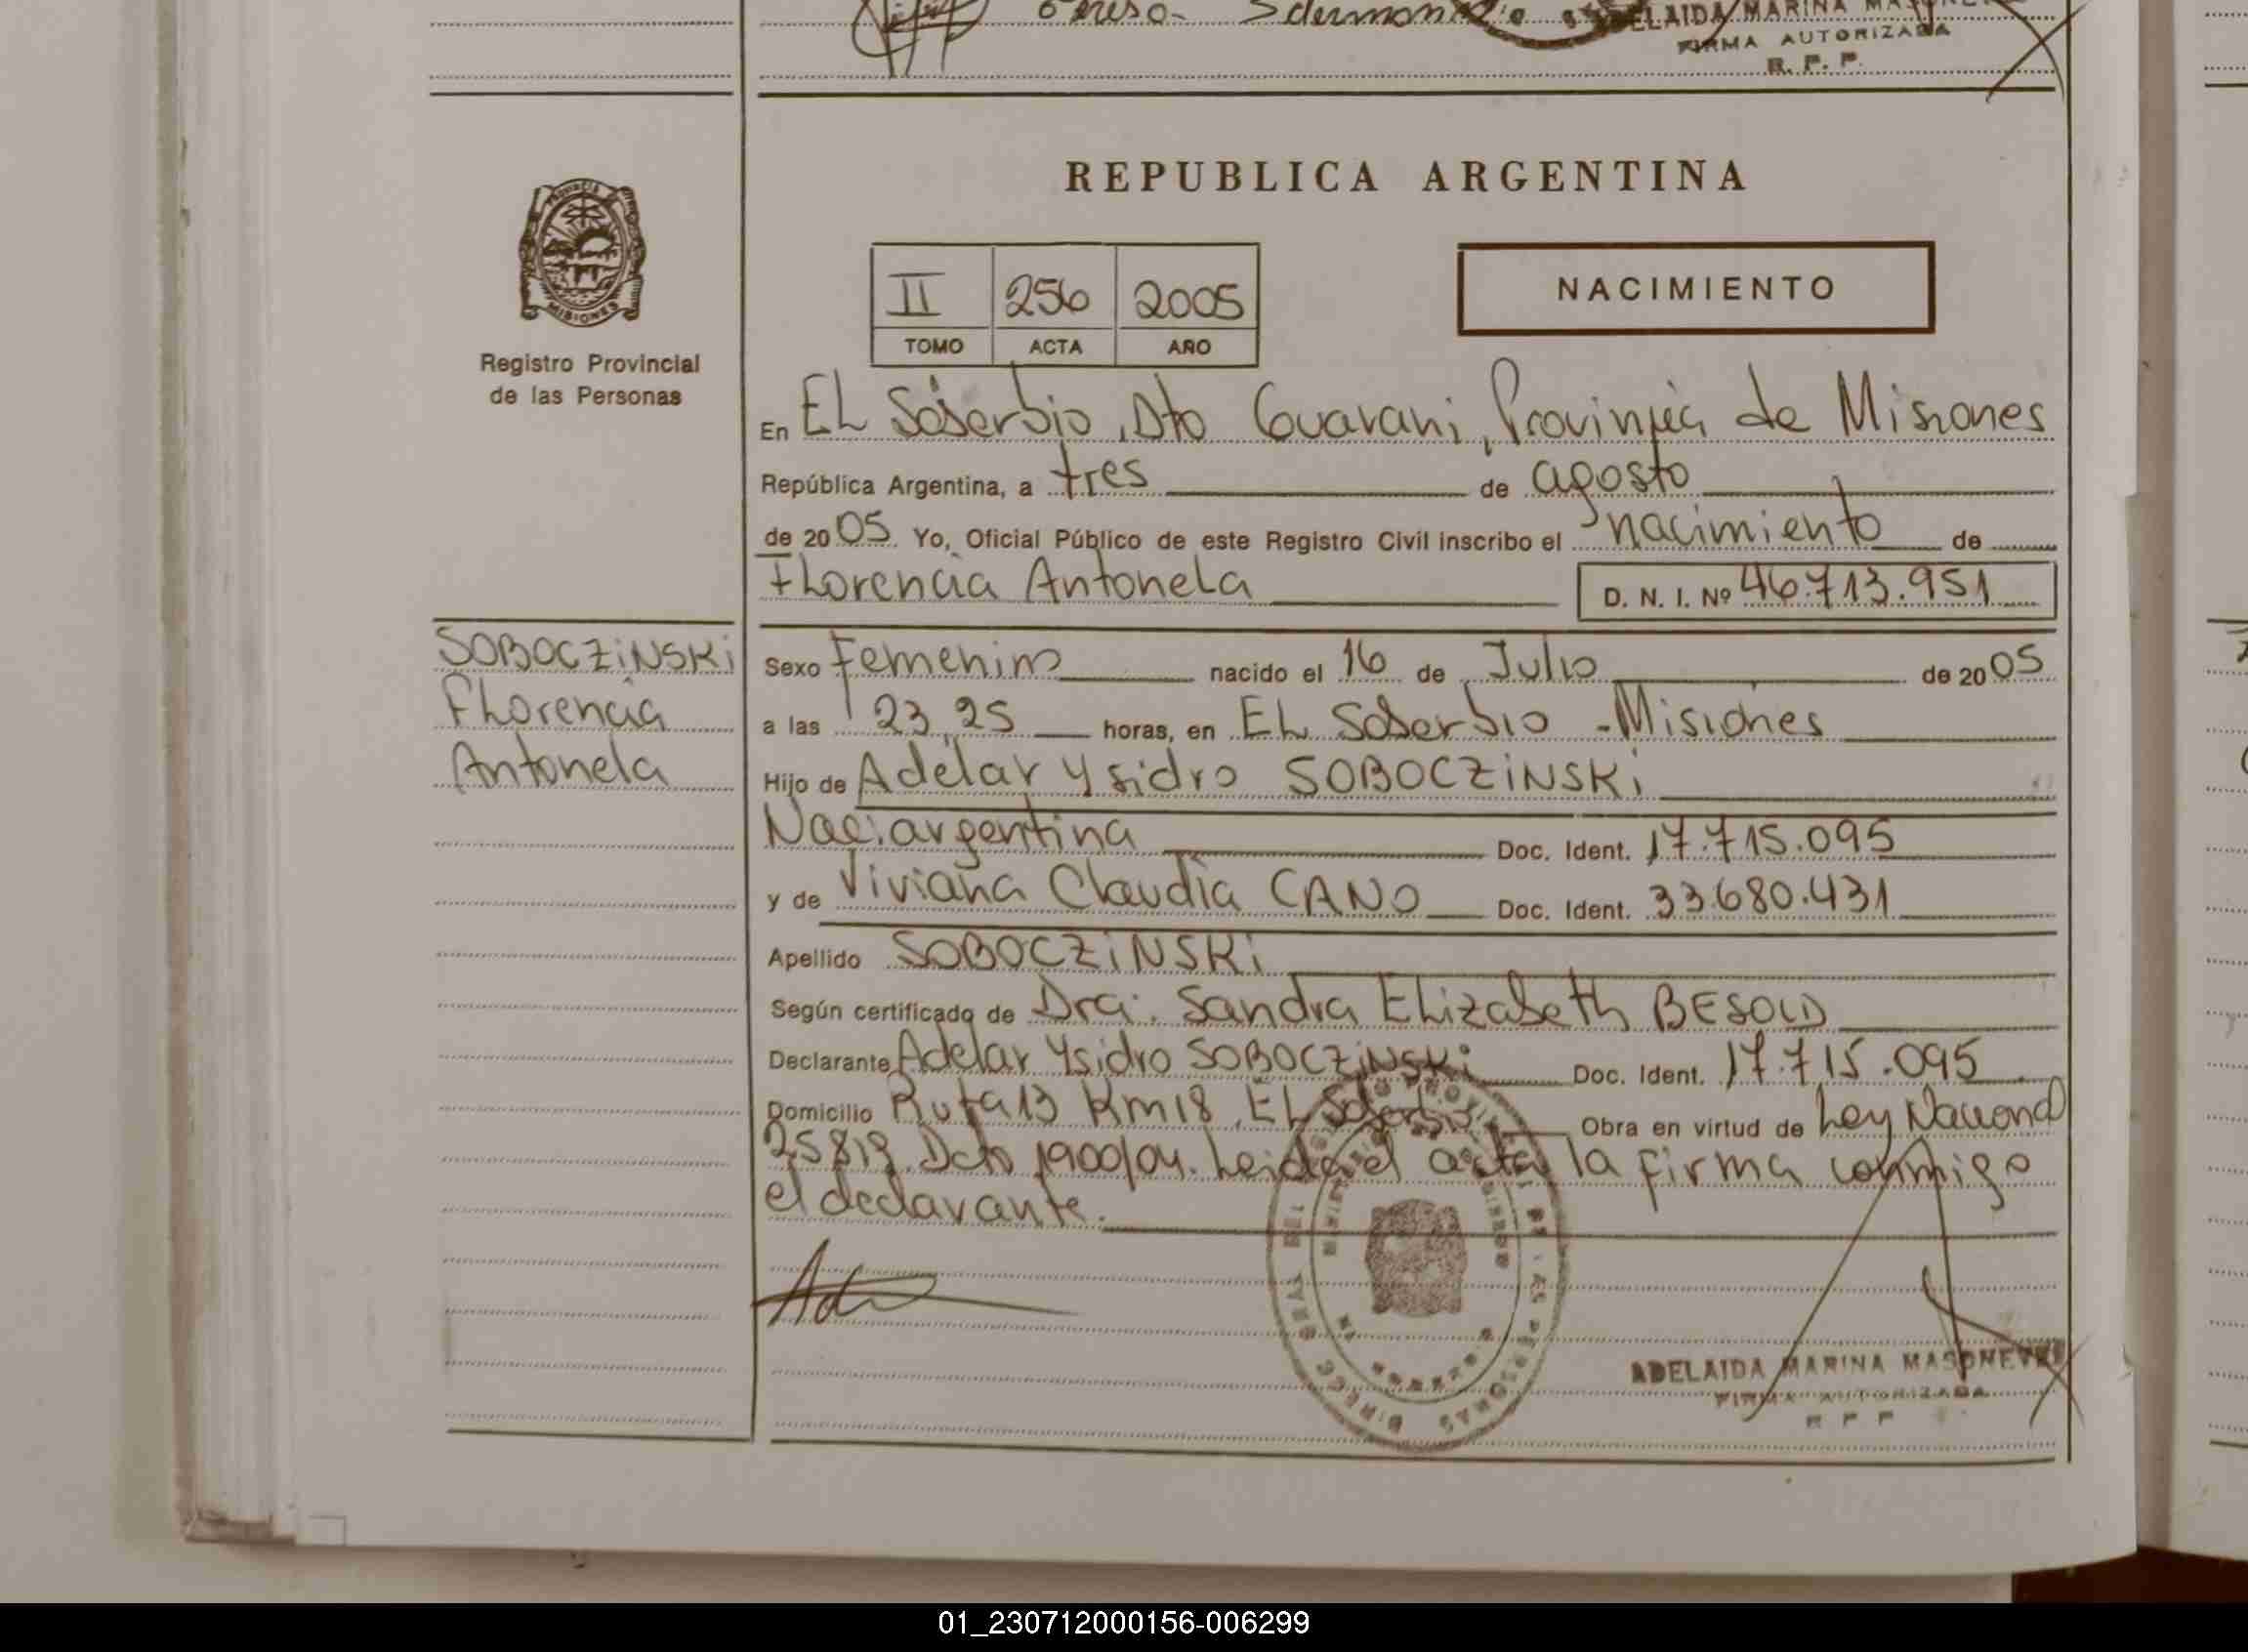 FIRMA AUTORIZADA
R. P. P.
PROVINCIA
MISIONES
Registro Provincial
de las Personas
REPUBLICA ARGENTINA
II 256 2005
TOMO ACTA AÑO
NACIMIENTO
En EL Soberbio, Dto Guarani, Provincia de Misiones
República Argentina, a tres de agosto
de 2005 Yo, Oficial Público de este Registro Civil inscribo el nacimiento de
Florencia Antonela D. N. I. Nº 46.713.951
SOBOCZiNSKi
Florencia
Antonela
Sexo Femenino nacido el 16 de Julio de 2005
a las 23,25 horas, en EL Soberbio - Misiones
Hijo de Adelar Ysidro SOBOCZiNSKi
Nac. argentina Doc. Ident. 17.715.095
y de Viviana Claudia CANO Doc. Ident. 33.680.431
Apellido SOBOCZiNSKi
Según certificado de Dra. Sandra Elizabeth BESOLD
Declarante Adelar Ysidro SOBOCZiNSKi Doc. Ident. 17.715.095
Domicilio Ruta 13 Km 18, EL Soberbio Obra en virtud de Ley Nacional
25.819. Dcto 1900/04. Leida el acta la firma conmigo
el declarante.
ADELAIDA MARINA
FIRMA AUTORIZADA
R P P
01_230712000156-006299